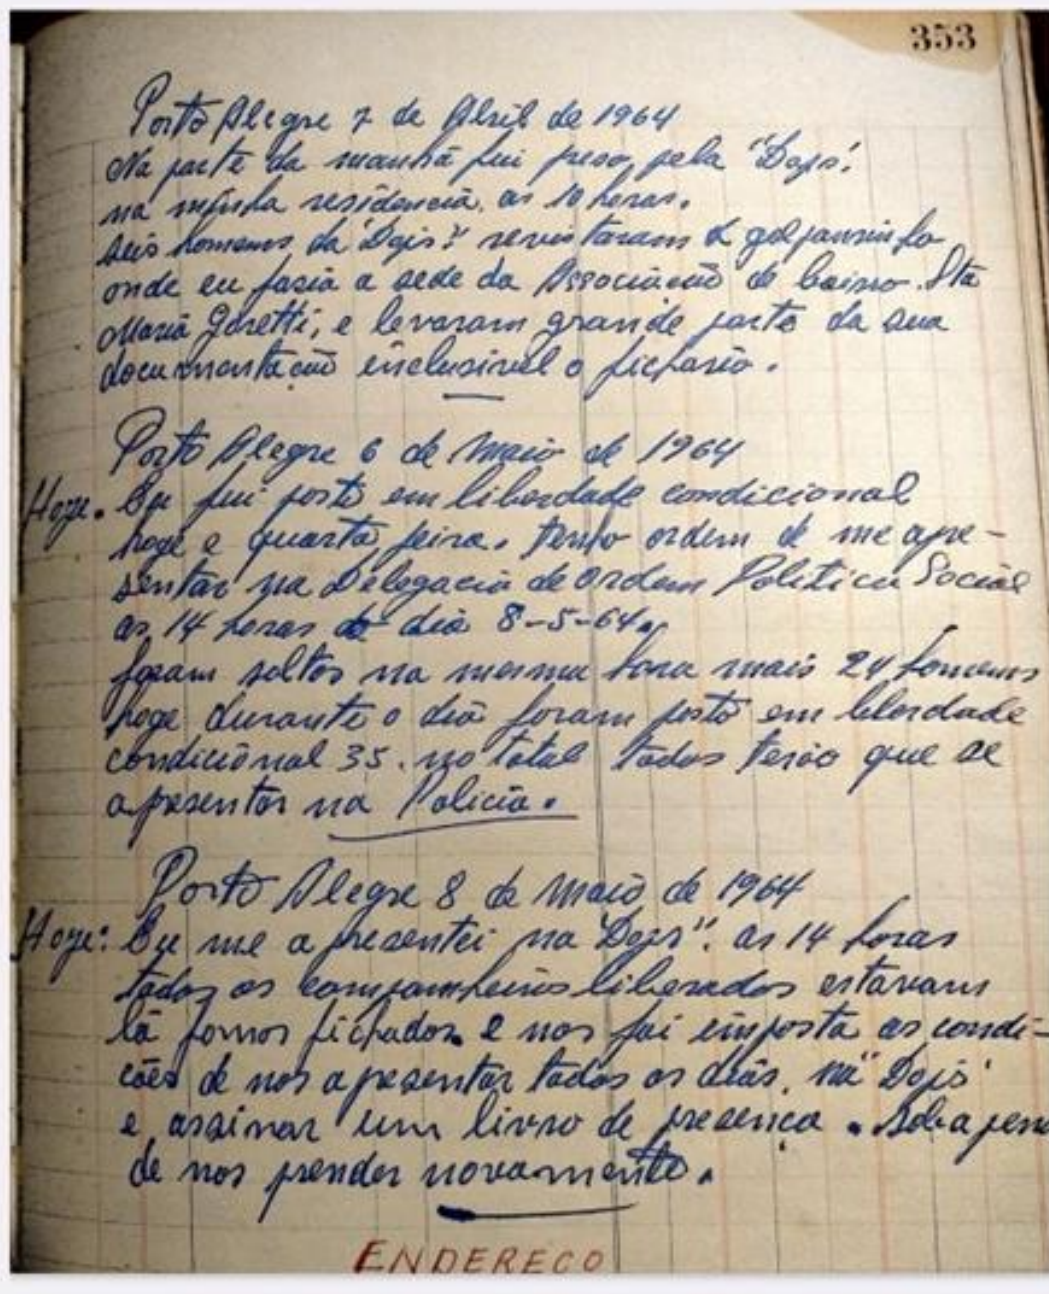 353
Porto Alegre 7 de Abril de 1964
Na parte da manhã fui preso, pela "Dops".
na minha residencia. as 10 horas.
seis homens da "Dops" revistaram o galpãosinho
onde eu fasia a sede da Associacão de bairro. Sta
Maria Goretti, e levaram grande parte da sua
documentacão inclusivel o fichario.
Porto Alegre 6 de Maio de 1964
Hoge. Eu fui posto em liberdade condicional
hoge e quarta feira. tenho ordem de me apre-
sentar na Delegacia de Ordem Politica Social
as 14 horas do dia 8-5-64.
foram soltos na mesma hora mais 24 homens
hoge durante o dia foram posto em liberdade
condicional 35. no total todos terão que se
apresentar na Policia.
Porto Alegre 8 de Maio de 1964
Hoge: Eu me apresentei na "Dops". as 14 horas
todos os companheiros liberados estavam
lá fomos fichados e nos foi imposta as condi-
cões de nos apresentar todos os dias, na "Dops"
e assinar um livro de presença. Soba pena
de nos prender novamente.
ENDERECO